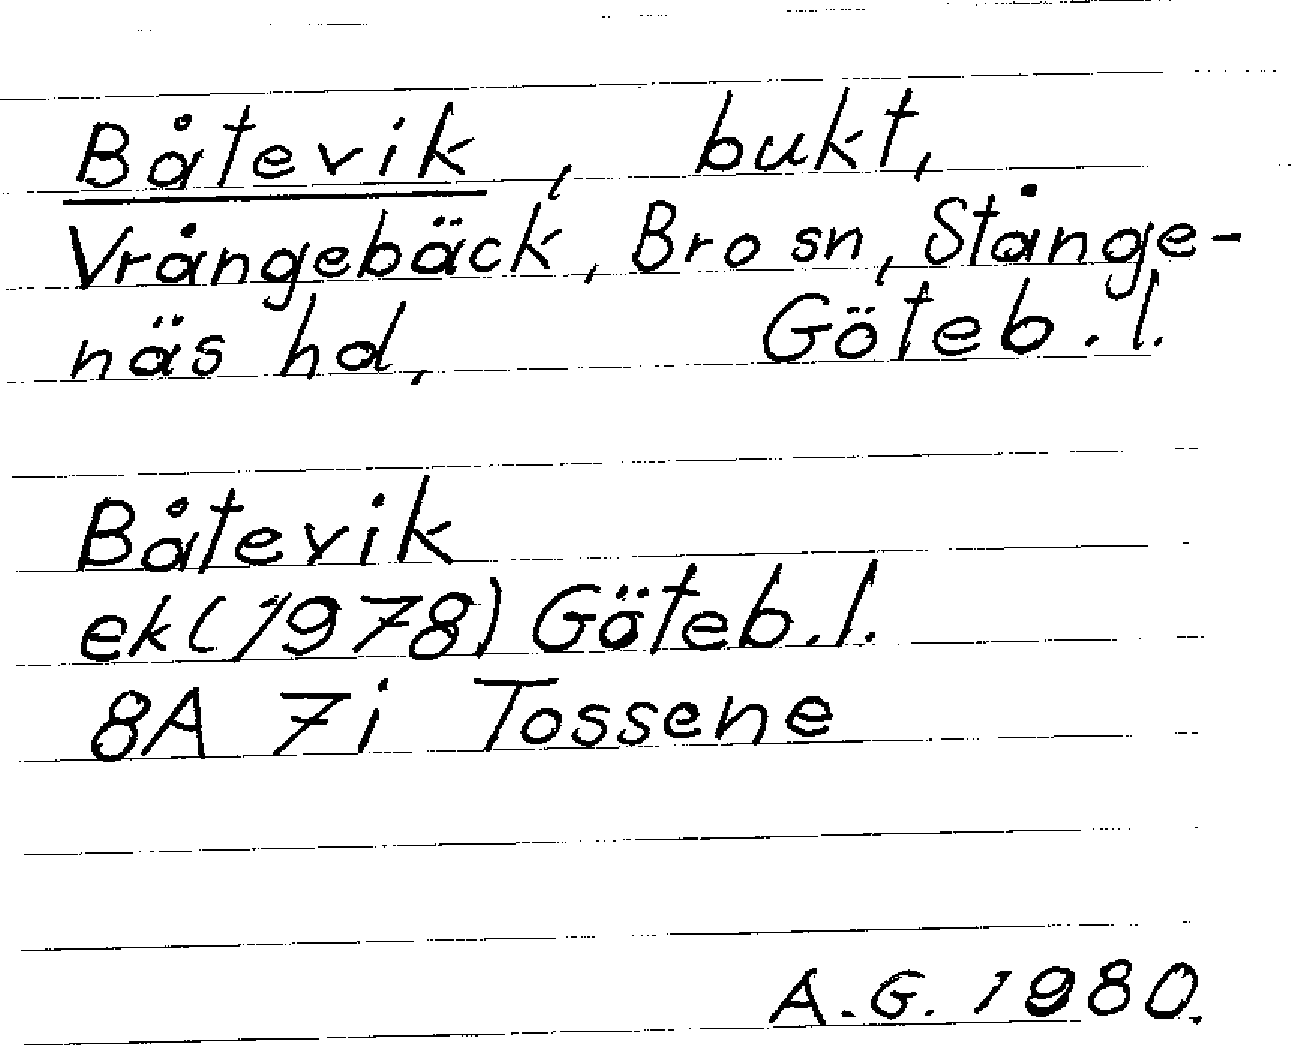 Båtevik, bukt,
Vrångebäck, Bro sn, Stånge-
näs hd, Göteb. l.
Båtevik
ek (1978) Göteb. l.
8A 7i Tossene
A. G. 1980.